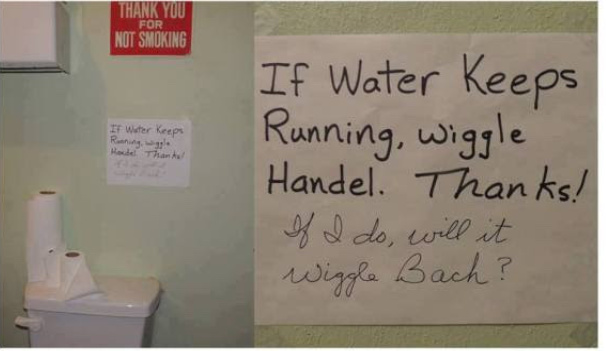 THANK YOU
FOR
NOT SMOKING
If Water Keeps
Running, wiggle
Handel. Thanks!
If I do, will it
wiggle Bach?
If Water Keeps
Running, wiggle
Handel. Thanks!
If I do, will it
wiggle Bach?